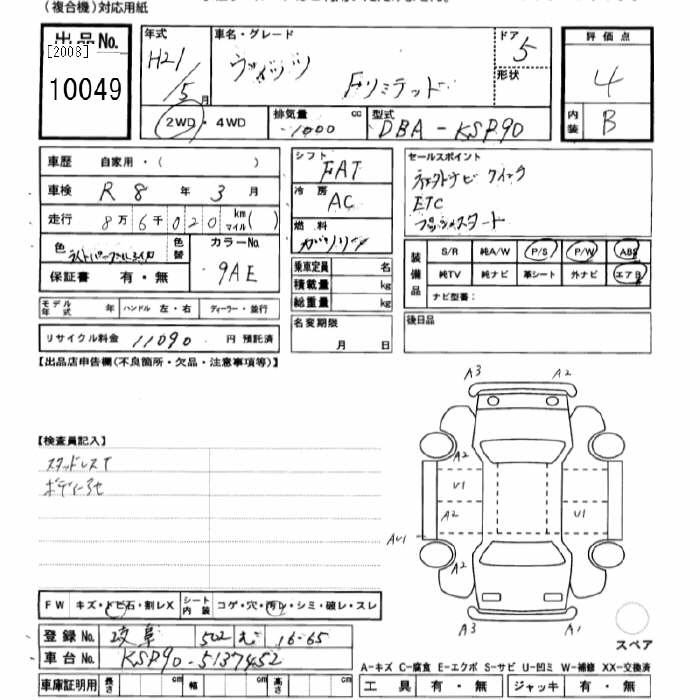 (複合機)対応用紙
出品No.
[2008]
10049
年式
H21/5月
車名・グレード
ヴィッツ
Fリミテッド
ドア
5
形状
評価点
4
内装
B
2WD・4WD
排気量
1000 cc
型式
DBA-KSP90
車歴 自家用・( )
車検 R8年 3月
走行 8万6千020 km マイル( )
色
色替
カラーNo.
9AE
保証書 有・無
モデル年式 年 ハンドル 左・右 ディーラー・並行
リサイクル料金 11090 円 預託済
シフト
FAT
冷房
AC
燃料
ガソリン
乗車定員 名
積載量 kg
総重量 kg
名変期限
月 日
セールスポイント
ナビ
ETC
プッシュスタート
装備品
S/R 純A/W P/S P/W ABS
純TV 純ナビ 革シート 外ナビ エアB
ナビ型番:
後日品
【出品店申告欄(不良箇所・欠品・注意事項等)】
【検査員記入】
スタッドレスT
A3 A2
A2
U1 U1
A2
AU1
A2
A3 A1
スペア
FW キズ・トビ石・割レX シート内装 コゲ・穴・汚レ・シミ・破レ・スレ
登録No. 岐阜 502 む 16-65
車台No. KSP90-5137452
車庫証明用 長さ cm 幅 cm 高さ cm
A-キズ C-腐食 E-エクボ S-サビ U-凹ミ W-補修 XX-交換済
工具 有・無 ジャッキ 有・無